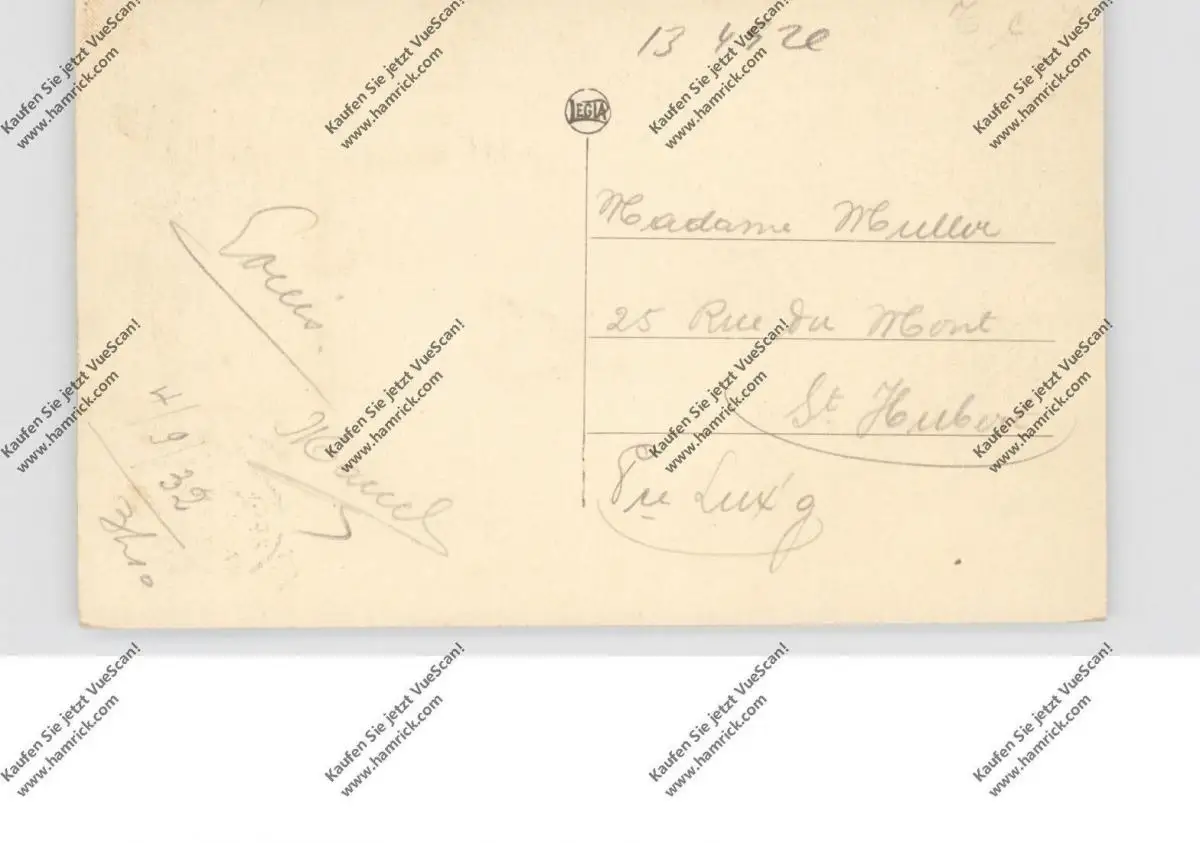 13 4 5 20
LEGIA
Louis.
Marcel
4/9/32
Madame Muller
25 Rue du Mont
St Hubert
Pce Lux'g
Kaufen Sie jetzt VueScan!
www.hamrick.com
Kaufen Sie jetzt VueScan!
www.hamrick.com
Kaufen Sie jetzt VueScan!
www.hamrick.com
Kaufen Sie jetzt VueScan!
www.hamrick.com
Kaufen Sie jetzt VueScan!
www.hamrick.com
Kaufen Sie jetzt VueScan!
www.hamrick.com
Kaufen Sie jetzt VueScan!
www.hamrick.com
Kaufen Sie jetzt VueScan!
www.hamrick.com
Kaufen Sie jetzt VueScan!
www.hamrick.com
Kaufen Sie jetzt VueScan!
www.hamrick.com
Kaufen Sie jetzt VueScan!
www.hamrick.com
Kaufen Sie jetzt VueScan!
www.hamrick.com